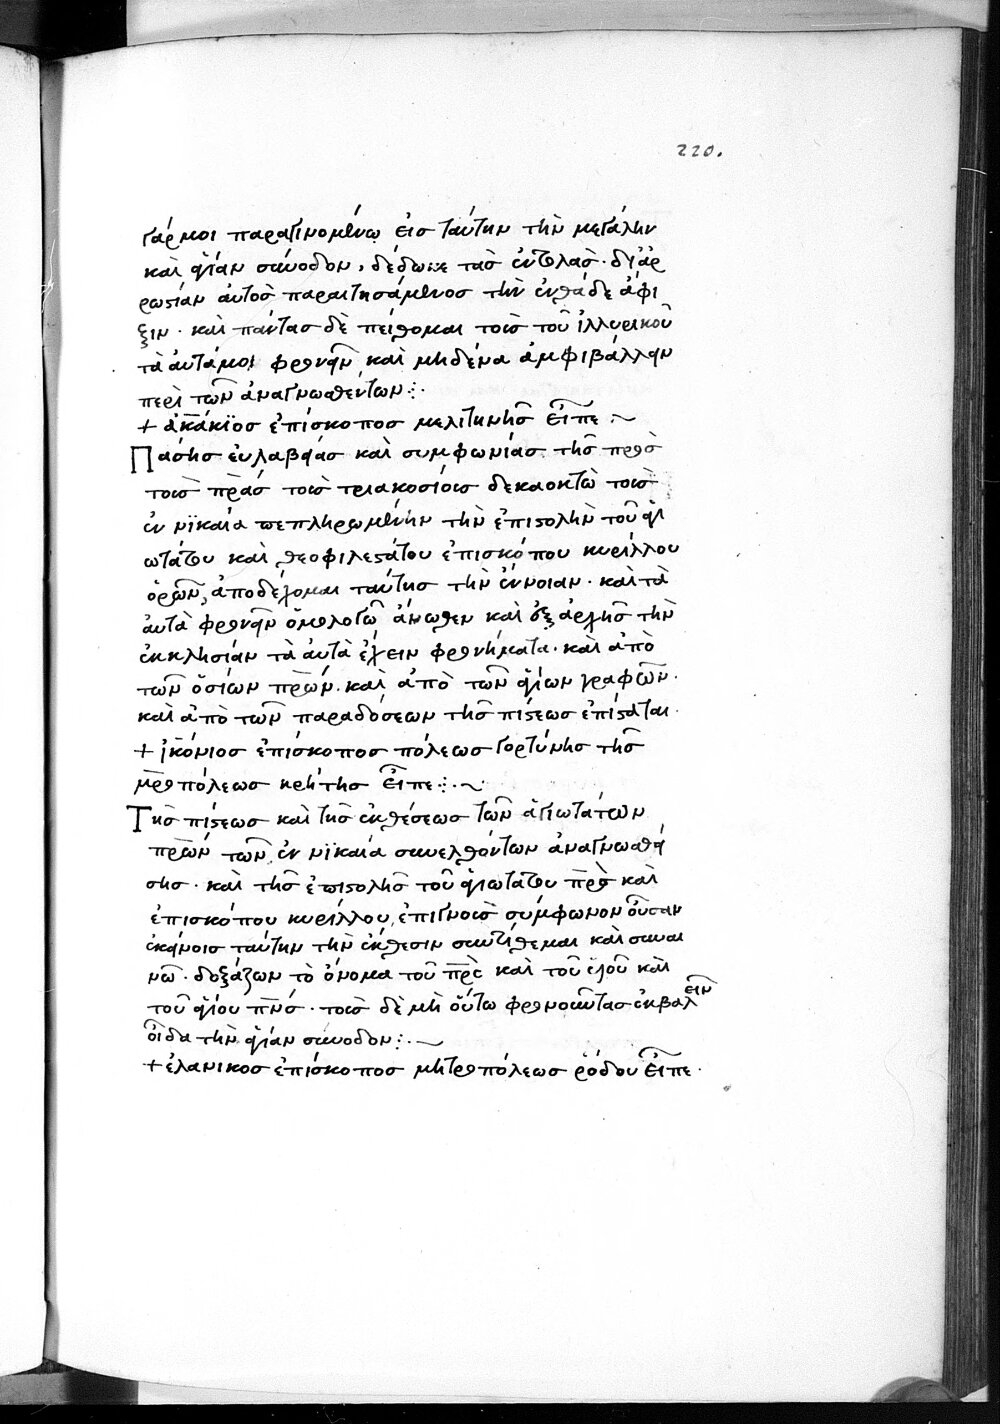 220.
γάρ μοι παραγινομένω εἰσ ταύτην τὴν μεγάλην
καὶ ἁγίαν σύνοδον, δέδωκε τὰσ ἐντολὰσ· δι' ἀρ
ρωστίαν αὐτὸσ παραιτησάμενοσ τὴν ἐνθάδε ἄφι
ξιν· καὶ πάντασ δὲ πείθομαι τοὺσ τοῦ ἰλλυρικοῦ
τὰ αὐτά μοι φρονεῖν, καὶ μηδένα ἀμφιβάλλειν
περὶ τῶν ἀναγνωσθέντων:·
+ ἀκάκϊοσ ἐπίσκοποσ μελιτηνῆσ εἶπε ~
Πάσησ εὐλαβείασ καὶ συμφωνίασ τῆσ πρὸσ
τοὺσ πρασ τοὺσ τριακοσίουσ δεκαοκτὼ τοὺσ
ἐν νϊκαία πεπληρωμένην τὴν ἐπιστολὴν τοῦ ἁγι
ωτάτου καὶ θεοφιλεστάτου ἐπισκόπου κυρίλλου
ὁρῶν, ἀποδέχομαι ταύτησ τὴν ἔννοιαν· καὶ τὰ
αὐτὰ φρονεῖν ὁμολογῶ ἄνωθεν καὶ ἐξ ἀρχῆσ τὴν
ἐκκλησίαν τὰ αὐτὰ ἔχειν φρονήματα· καὶ ἀπὸ
τῶν ὁσίων πρων· καὶ ἀπὸ τῶν ἁγίων γραφῶν·
καὶ ἀπὸ τῶν παραδόσεων τῆσ πίστεωσ ἐπίσταται·
+ ἰκόνιοσ ἐπίσκοποσ πόλεωσ γορτύνησ τῆσ
μροπόλεωσ κρήτησ εἶπε:·~
Τῆσ πίστεωσ καὶ τῆσ ἐκθέσεωσ τῶν ἁγιωτάτων
πρων τῶν ἐν νϊκαία συνελθόντων ἀναγνωσθεί
σησ· καὶ τῆσ ἐπιστολῆσ τοῦ ἁγιωτάτου πρσ καὶ
ἐπισκόπου κυρίλλου, ἐπιγνοὺσ σύμφωνον οὖσαν
ἐκείνοισ ταύτην τὴν ἔκθεσιν συντίθεμαι καὶ συναι
νῶ· δοξάζων τὸ ὄνομα τοῦ πρσ καὶ τοῦ υἱοῦ καὶ
τοῦ ἁγίου πνσ· τοὺσ δὲ μὴ οὕτω φρονοῦντασ ἐκβαλεῖν
οἶδα τὴν ἁγίαν σύνοδον:·~
+ ἑλανικοσ ἐπίσκοποσ μητροπόλεωσ ῥόδου εἶπε·